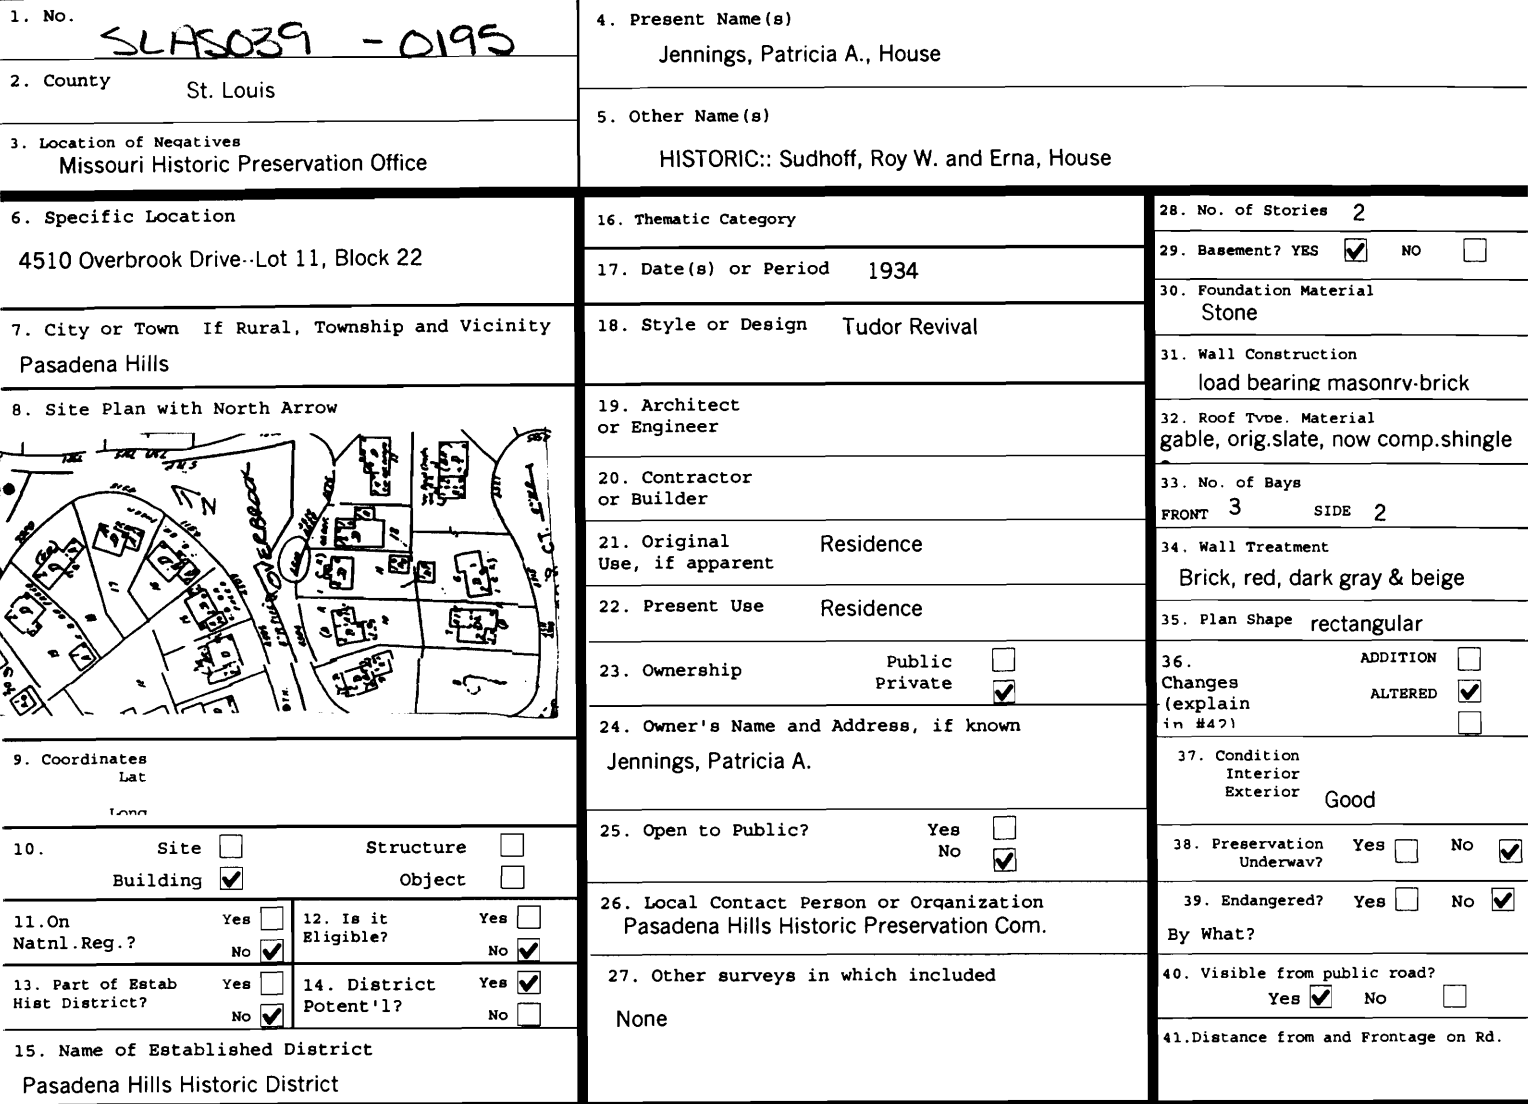 1. No.
SLAS039 - 0195
2. County
St. Louis
3. Location of Negatives
Missouri Historic Preservation Office
4. Present Name(s)
Jennings, Patricia A., House
5. Other Name(s)
HISTORIC:: Sudhoff, Roy W. and Erna, House
6. Specific Location
4510 Overbrook Drive--Lot 11, Block 22
7. City or Town If Rural, Township and Vicinity
Pasadena Hills
8. Site Plan with North Arrow
N
OVERBROOK
9. Coordinates
Lat
Long
10. Site Structure
Building ✔ Object
11.On Natnl.Reg.?
Yes
No ✔
12. Is it Eligible?
Yes
No ✔
13. Part of Estab Hist District?
Yes
No ✔
14. District Potent'l?
Yes ✔
No
15. Name of Established District
Pasadena Hills Historic District
16. Thematic Category
17. Date(s) or Period 1934
18. Style or Design Tudor Revival
19. Architect
or Engineer
20. Contractor
or Builder
21. Original Residence
Use, if apparent
22. Present Use Residence
23. Ownership Public
Private ✔
24. Owner's Name and Address, if known
Jennings, Patricia A.
25. Open to Public? Yes
No ✔
26. Local Contact Person or Organization
Pasadena Hills Historic Preservation Com.
27. Other surveys in which included
None
28. No. of Stories 2
29. Basement? YES ✔ NO
30. Foundation Material
Stone
31. Wall Construction
load bearing masonry-brick
32. Roof Type. Material
gable, orig.slate, now comp.shingle
33. No. of Bays
FRONT 3 SIDE 2
34. Wall Treatment
Brick, red, dark gray & beige
35. Plan Shape rectangular
36. ADDITION
Changes
(explain ALTERED ✔
in #42)
37. Condition
Interior
Exterior Good
38. Preservation Yes No ✔
Underway?
39. Endangered? Yes No ✔
By What?
40. Visible from public road?
Yes ✔ No
41.Distance from and Frontage on Rd.